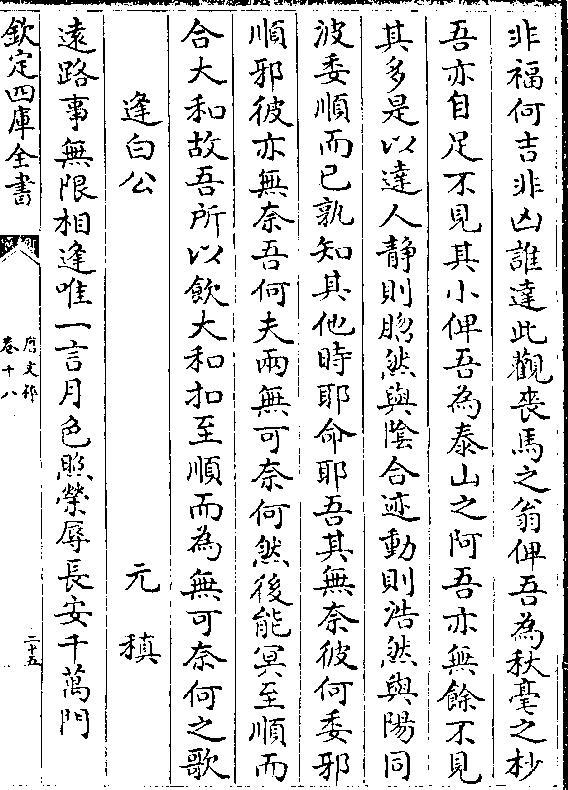 非福何吉非凶誰達此觀喪馬之翁俾吾為秋毫之杪
吾亦自足不見其小俾吾為泰山之阿吾亦無餘不見
其多是以達人静則脗然與陰合迹動則浩然與陽同
波委順而已孰知其他時耶命耶吾其無奈彼何委邪
順邪彼亦無奈吾何夫兩無可奈何然後能冥至順而
合大和故吾所以飲大和扣至順而為無可奈何之歌
逢白公
元稹
遠路事無限相逢唯一言月色照榮辱長安千萬門
欽定四庫全書
唐文粹
卷十八
二十五